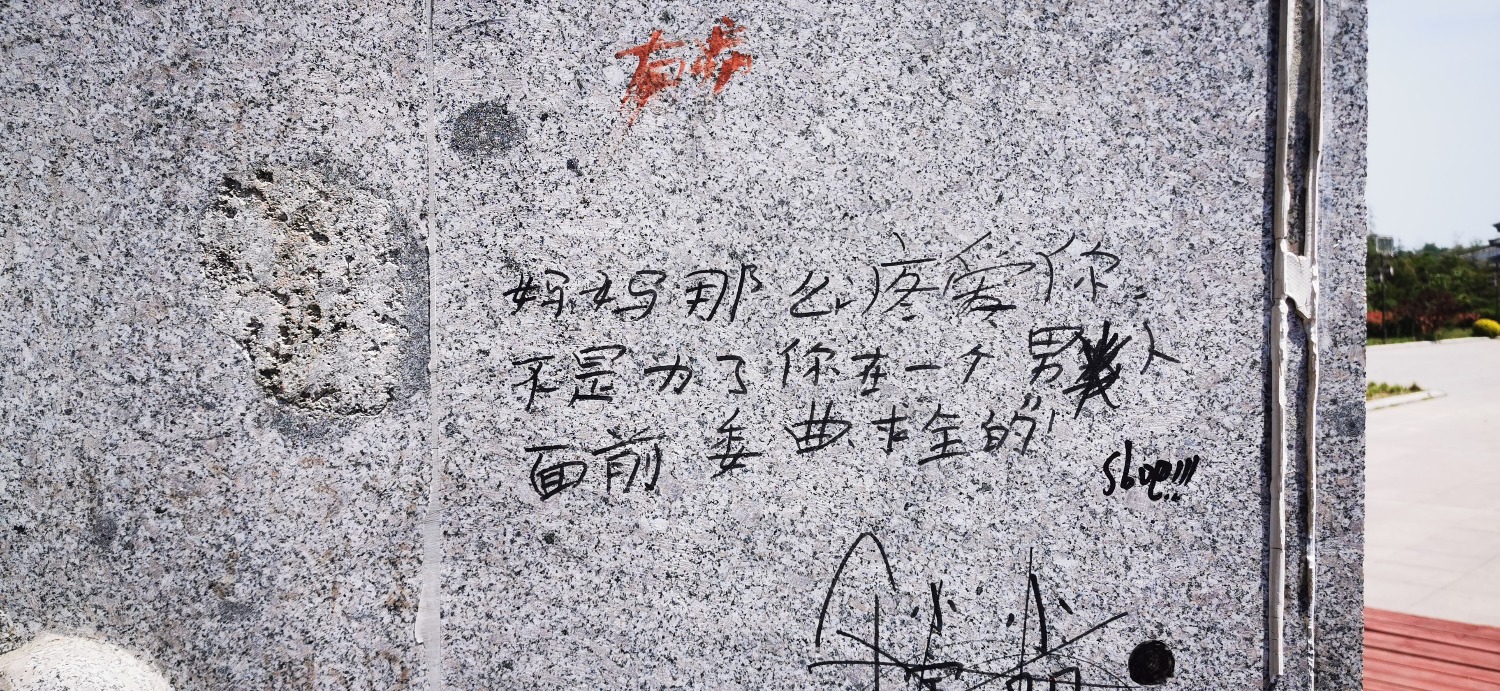 妈妈那么疼爱你
不是为了你在一个男人
面前委曲求全的
stop!!!